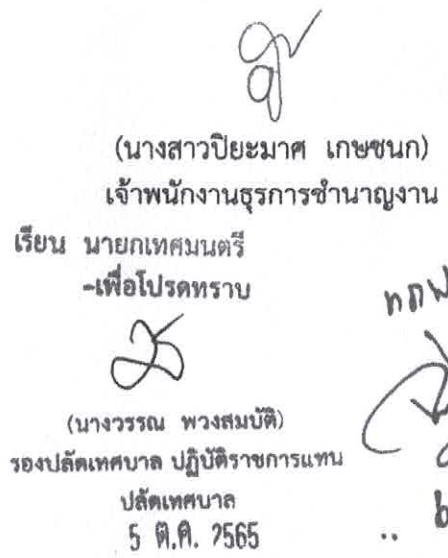 (นางสาวปิยะมาศ เกษชนก)
เจ้าพนักงานธุรการชำนาญงาน
เรียน นายกเทศมนตรี
-เพื่อโปรดทราบ
(นางวรรณ พวงสมบัติ)
รองปลัดเทศบาล ปฏิบัติราชการแทน
ปลัดเทศบาล
5 ต.ค. 2565